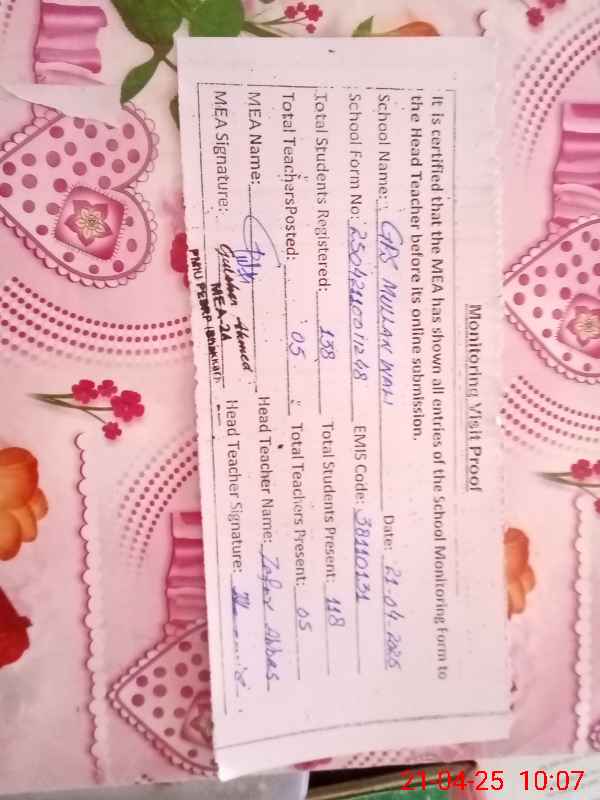 Monitoring Visit Proof
It is certified that the MEA has shown all entries of the School Monitoring Form to
the Head Teacher before its online submission.
School Name: GPS MULLAN WALI Date: 21-04-2025
School Form No: 2504211001268 EMIS Code: 38110131
Total Students Registered: 138 Total Students Present: 118
Total TeachersPosted: 05 Total Teachers Present: 05
MEA Name: Head Teacher Name: Zafar Abbas
MEA Signature: Gulshan Ahmed Head Teacher Signature:
MEA-2A
PMIU PESRP (Bhakkar)
21-04-25 10:07